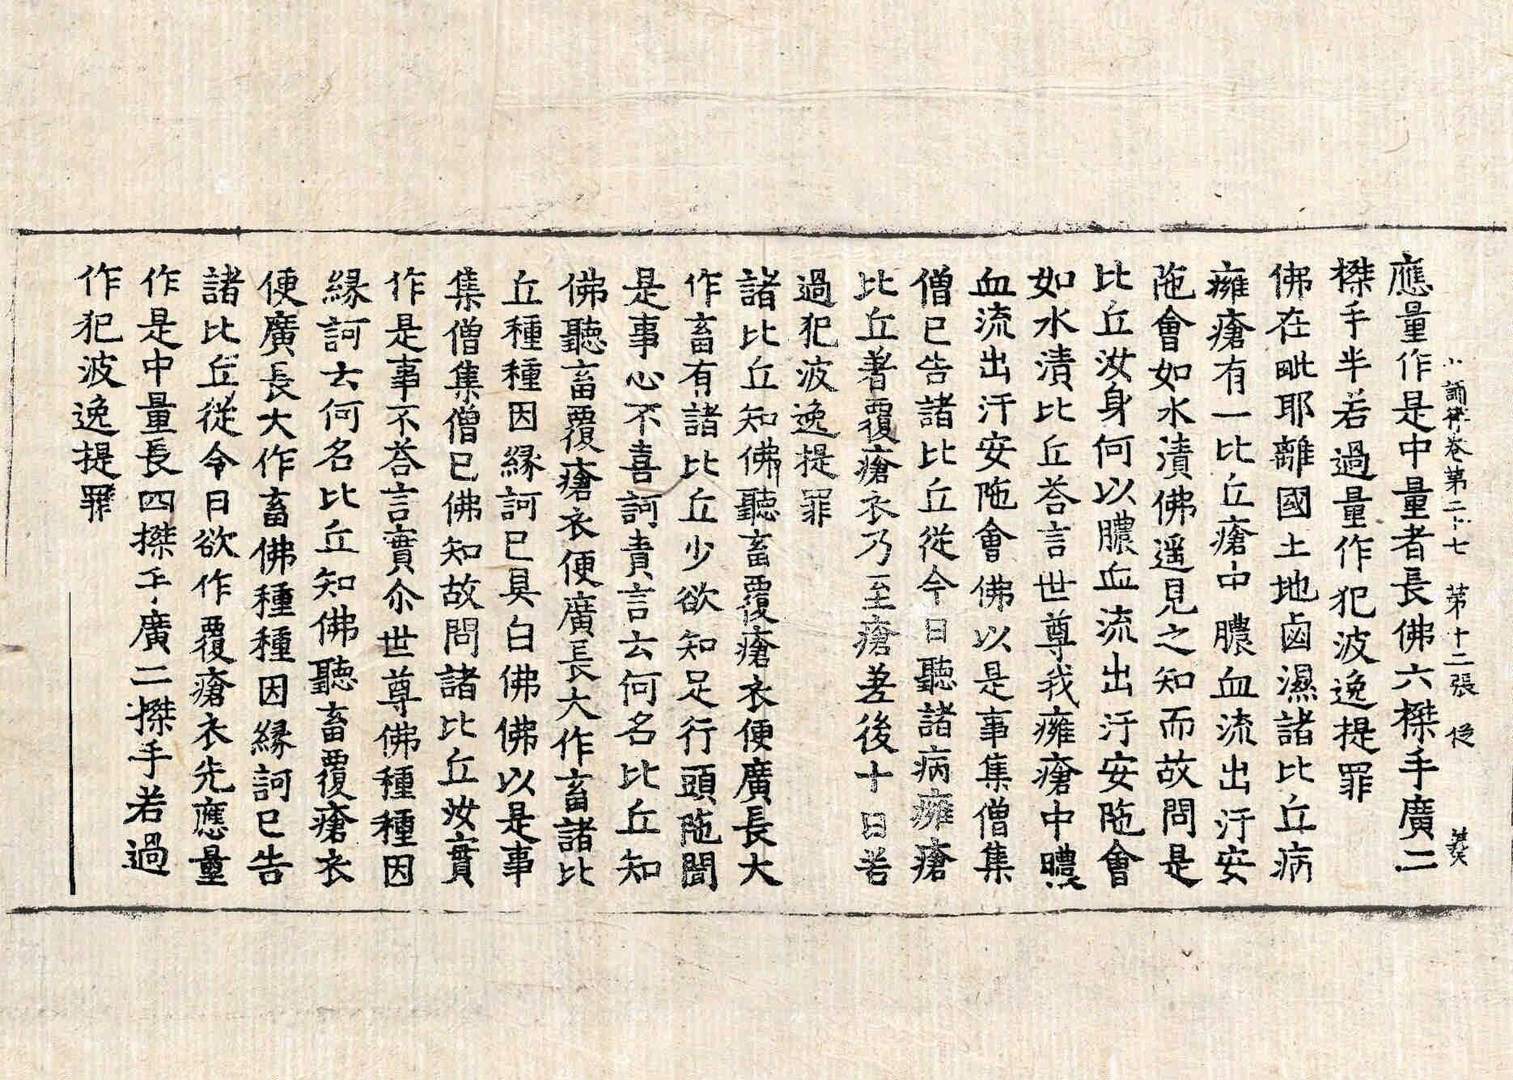 十誦律卷第二十七 第十二張 從
應量作是中量者長佛六搩手廣二
搩手半若過量作犯波逸提罪
佛在毗耶離國土地鹵濕諸比丘病
癰瘡有一比丘瘡中膿血流出汙安
陁會如水漬佛遥見之知而故問是
比丘汝身何以膿血流出汙安陁會
如水漬比丘荅言世尊我癰瘡中膿
血流出汗安陁會佛以是事集僧集
僧已告諸比丘從今日聽諸病癰瘡
比丘著覆瘡衣乃至瘡差後十日若
過犯波逸提罪
諸比丘知佛聽畜覆瘡衣便廣長大
作畜有諸比丘少欲知足行頭陁聞
是事心不喜訶責言云何名比丘知
佛聽畜覆瘡衣便廣長大作畜諸比
丘種種因縁訶已具白佛佛以是事
集僧集僧已佛知故問諸比丘汝實
作是事不荅言實尒世尊佛種種因
縁訶云何名比丘知佛聽畜覆瘡衣
便廣長大作畜佛種種因縁訶已告
諸比丘從今日欲作覆瘡衣先應量
作是中量長四搩手廣二搩手若過
作犯波逸提罪